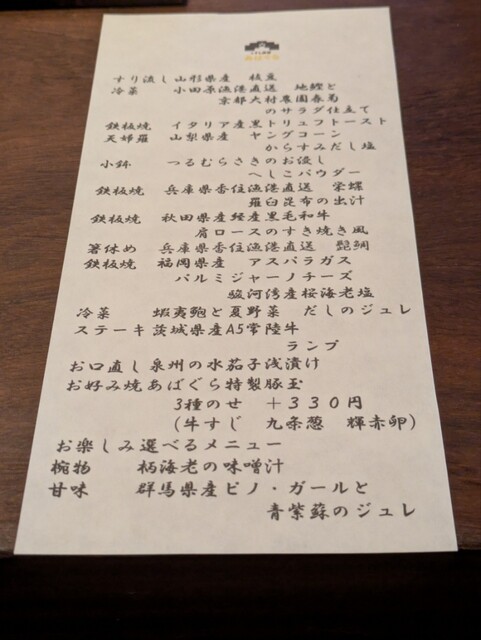 すり流し 山形県産 枝豆
冷菜 小田原漁港直送 地鰹と
京都大村農園春菊
のサラダ仕立て
鉄板焼 イタリア産黒トリュフトースト
天婦羅 山梨県産 ヤングコーン
からすみだし塩
小鉢 つるむらさきのお浸し
へしこパウダー
鉄板焼 兵庫県香住漁港直送 栄螺
羅臼昆布の出汁
鉄板焼 秋田県産経産黒毛和牛
肩ロースのすき焼き風
箸休め 兵庫県香住漁港直送 鯛
鉄板焼 福岡県産 アスパラガス
パルミジャーノチーズ
駿河湾産桜海老塩
冷菜 蝦夷鮑と夏野菜 だしのジュレ
ステーキ 茨城県産A5常陸牛
ランプ
お口直し 泉州の水茄子浅漬け
お好み焼 あばぐら特製豚玉
3種のせ +330円
(牛すじ 九条葱 輝赤卵)
お楽しみ選べるメニュー
椀物 柄海老の味噌汁
甘味 群馬県産ピノ・ガールと
青紫蘇のジュレ